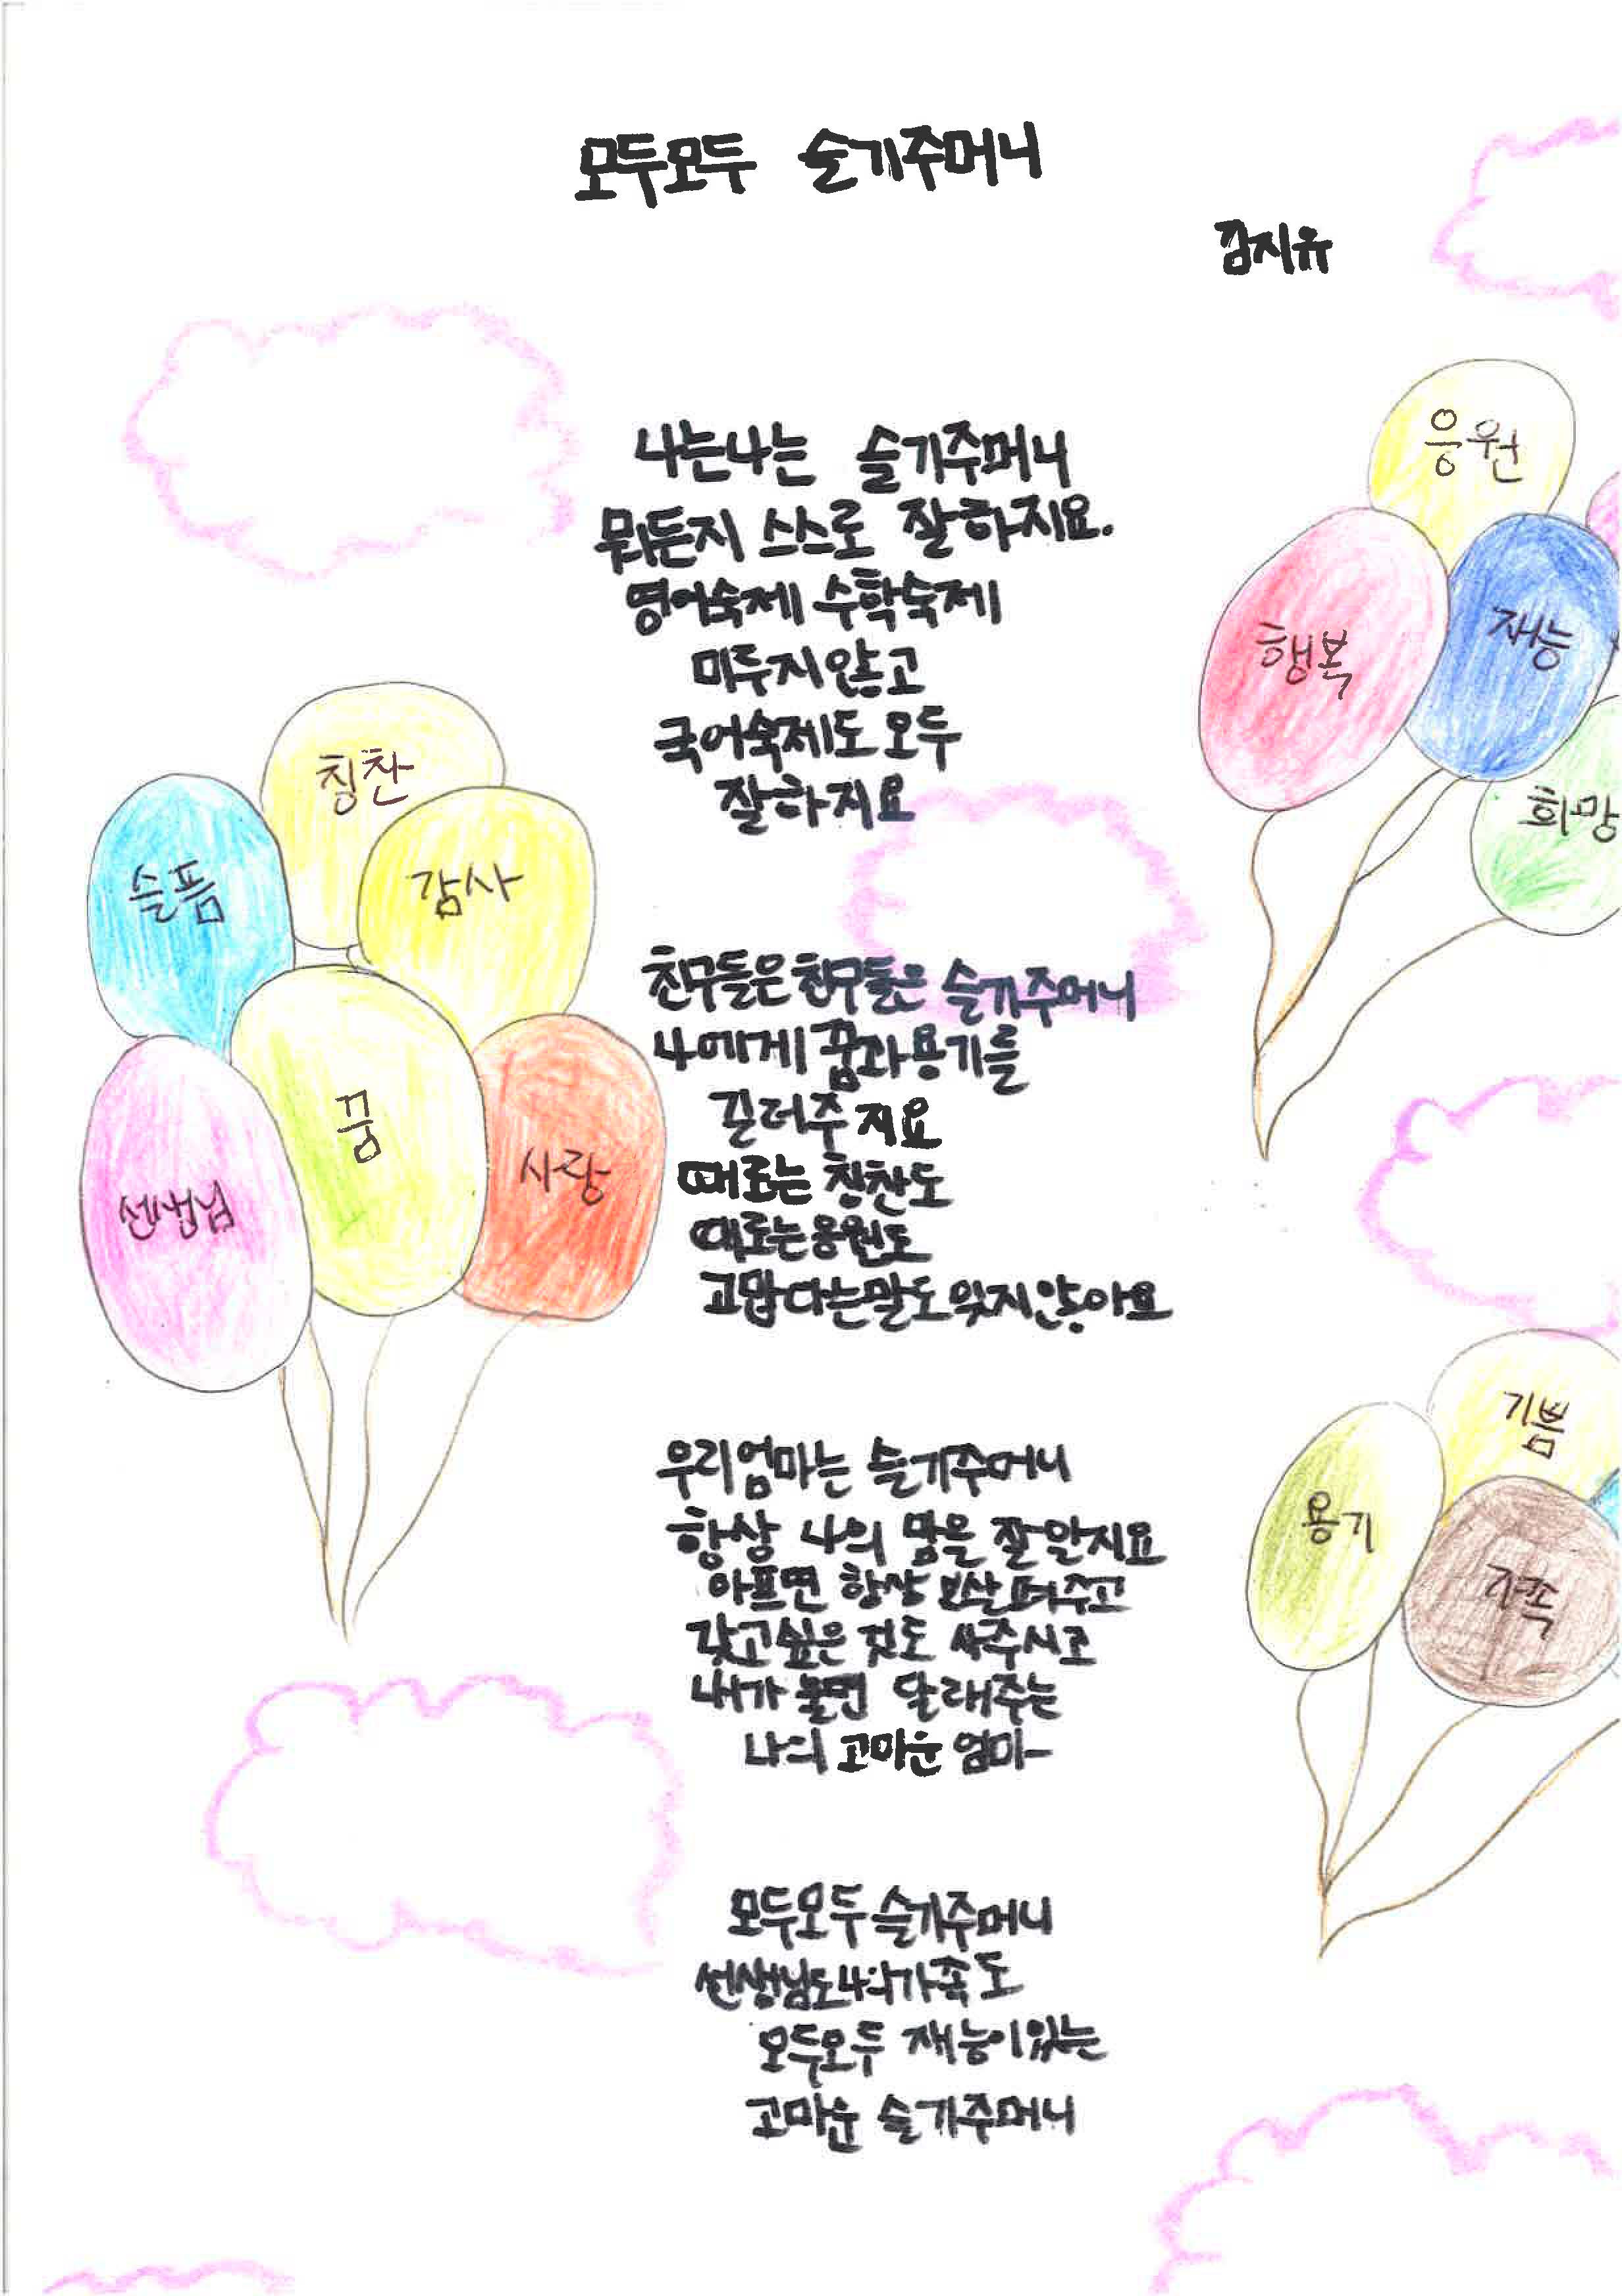 모두모두 슬기주머니
김지유
나는나는 슬기주머니
뭐든지 스스로 잘하지요.
영어숙제 수학숙제
미루지않고
국어숙제도 모두
잘하지요
친구들은 친구들은 슬기주머니
나에게 꿈과용기를
길러주지요
때로는 칭찬도
때로는응원도
고맙다는말도잊지않아요
우리엄마는 슬기주머니
항상 나의 맘을 잘알지요
아프면 항상 보살펴주고
갖고싶은 것도 싸주시고
내가 울면 달래주는
나의 고마운 엄마
모두모두슬기주머니
선생님도나의가족도
모두모두 재능이있는
고마운 슬기주머니
칭찬
슬픔
감사
꿈
사랑
선생님
응원
행복
재능
희망
기쁨
용기
가족